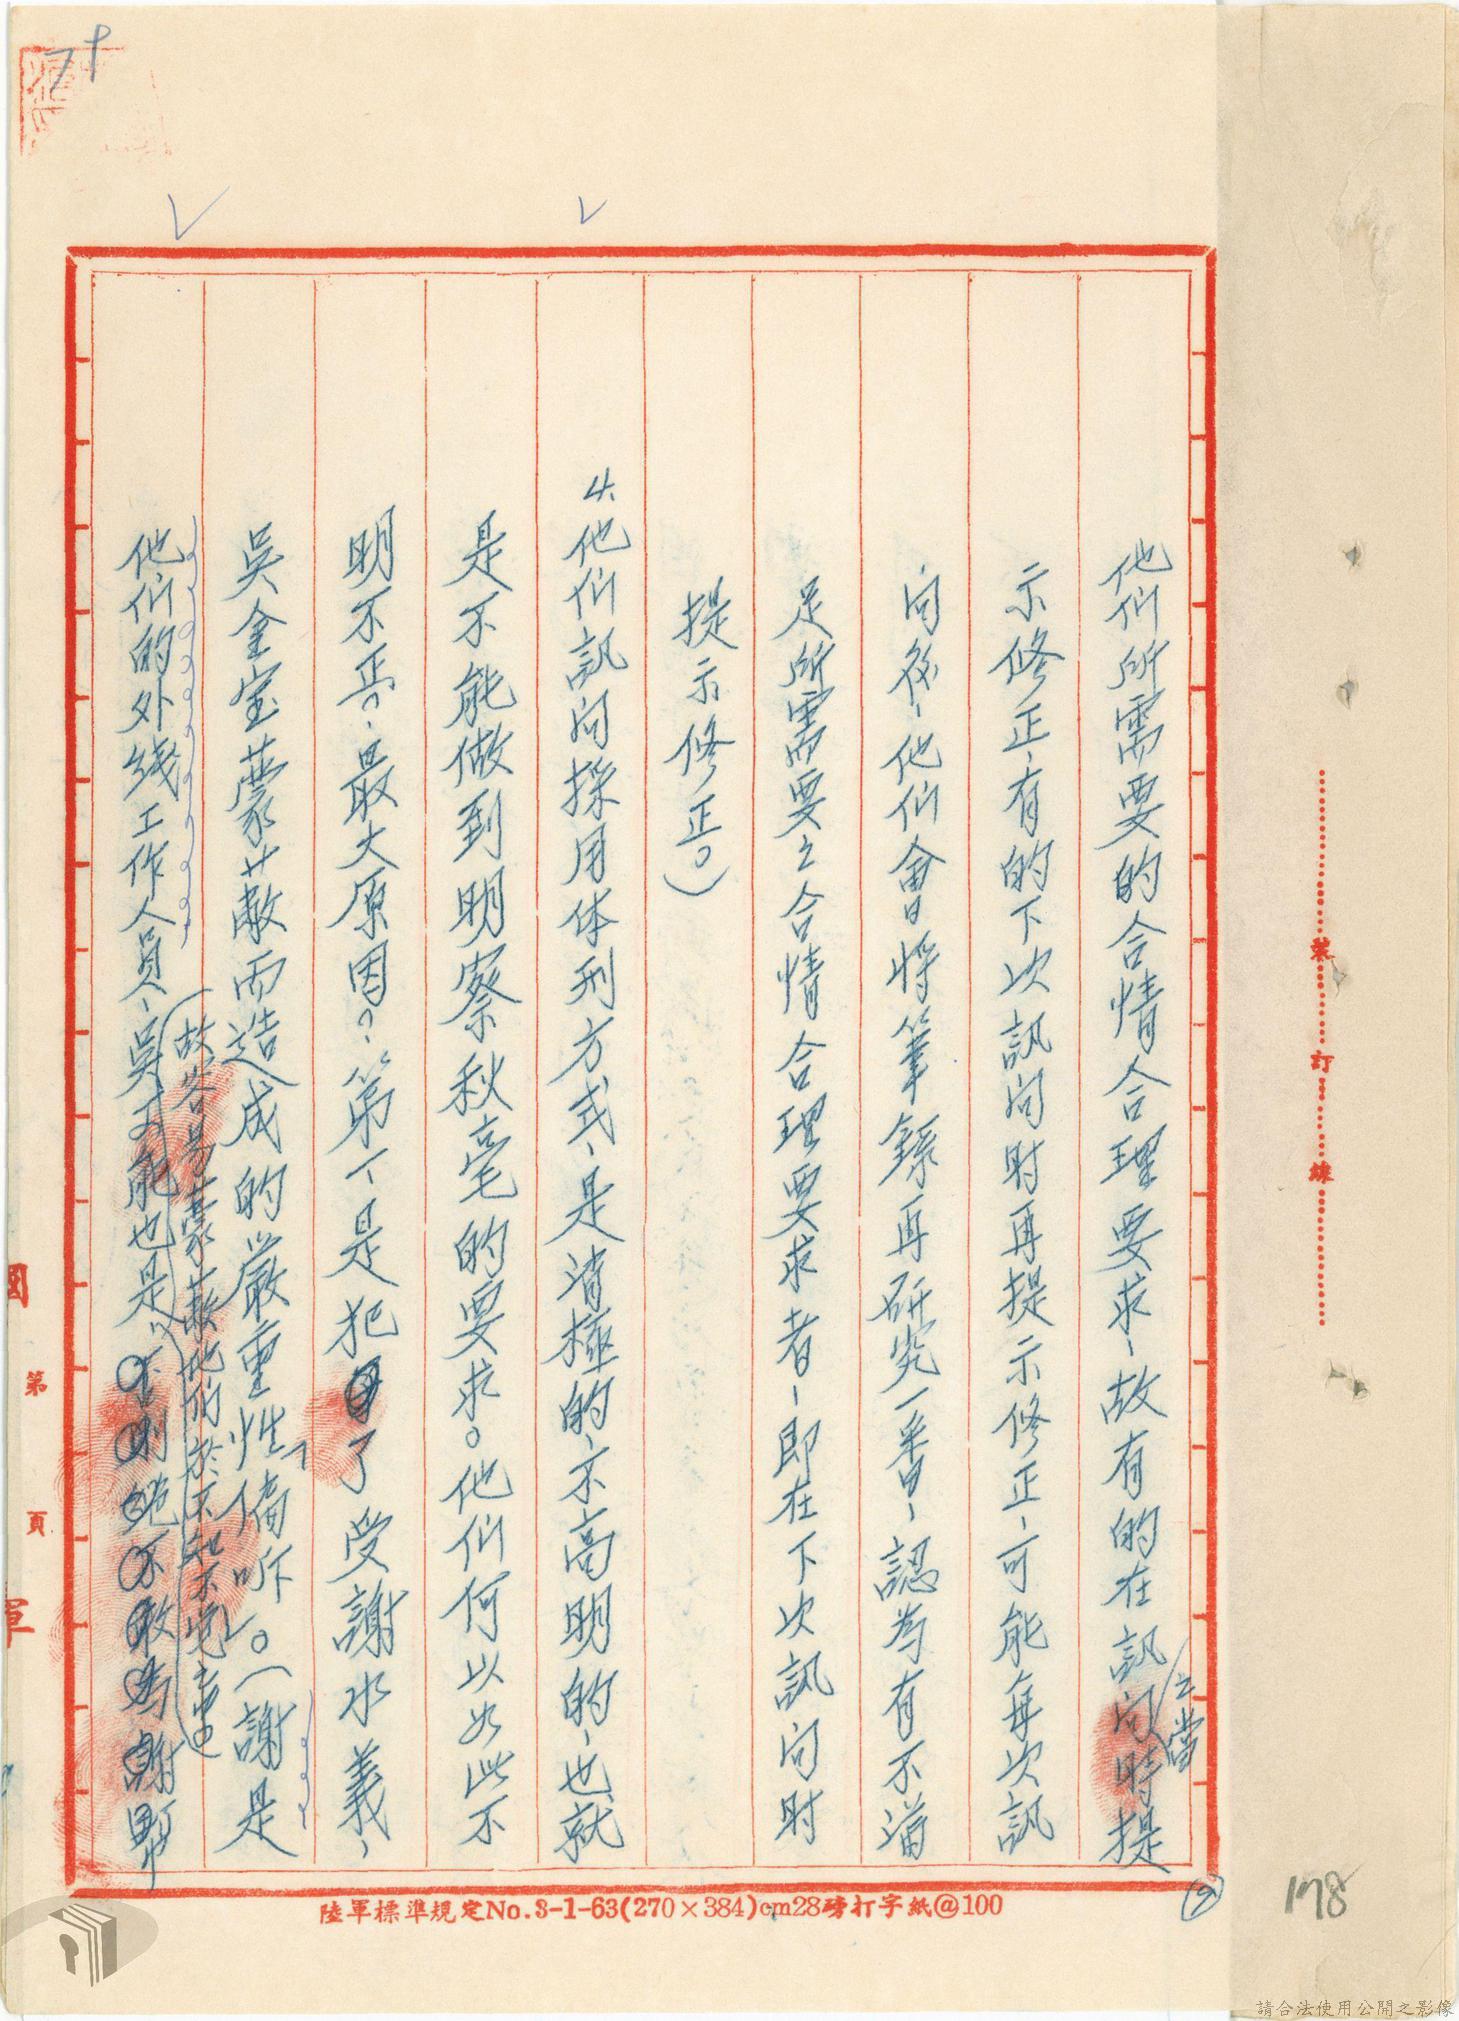 他们所需要的合情合理要求、故有的在訊问時提
之當
示修正、有的下次訊问时再提示修正、可能每次訊
问後、他们會将筆錄再研究一番、認為有不滿
足所需要之合情合理要求者、即在下次訊问时
提示修正。)
4.他们訊问採用体刑方式、是消極的、不高明的、也就
是不能做到明察秋毫的要求。他们何以如此不
明不正。、最大原因?、第一是犯了受謝水義、
吳金宝蒙蔽而造成的嚴重性「偏听」。(謝是
他们的外线工作人員、吳可能也是、
故容易蒙蔽他们於不知不觉
國 第 頁 軍
陸軍標準規定No.3-1-63(270×384)cm28磅打字紙@100
裝 訂 線
178
請合法使用公開之影像